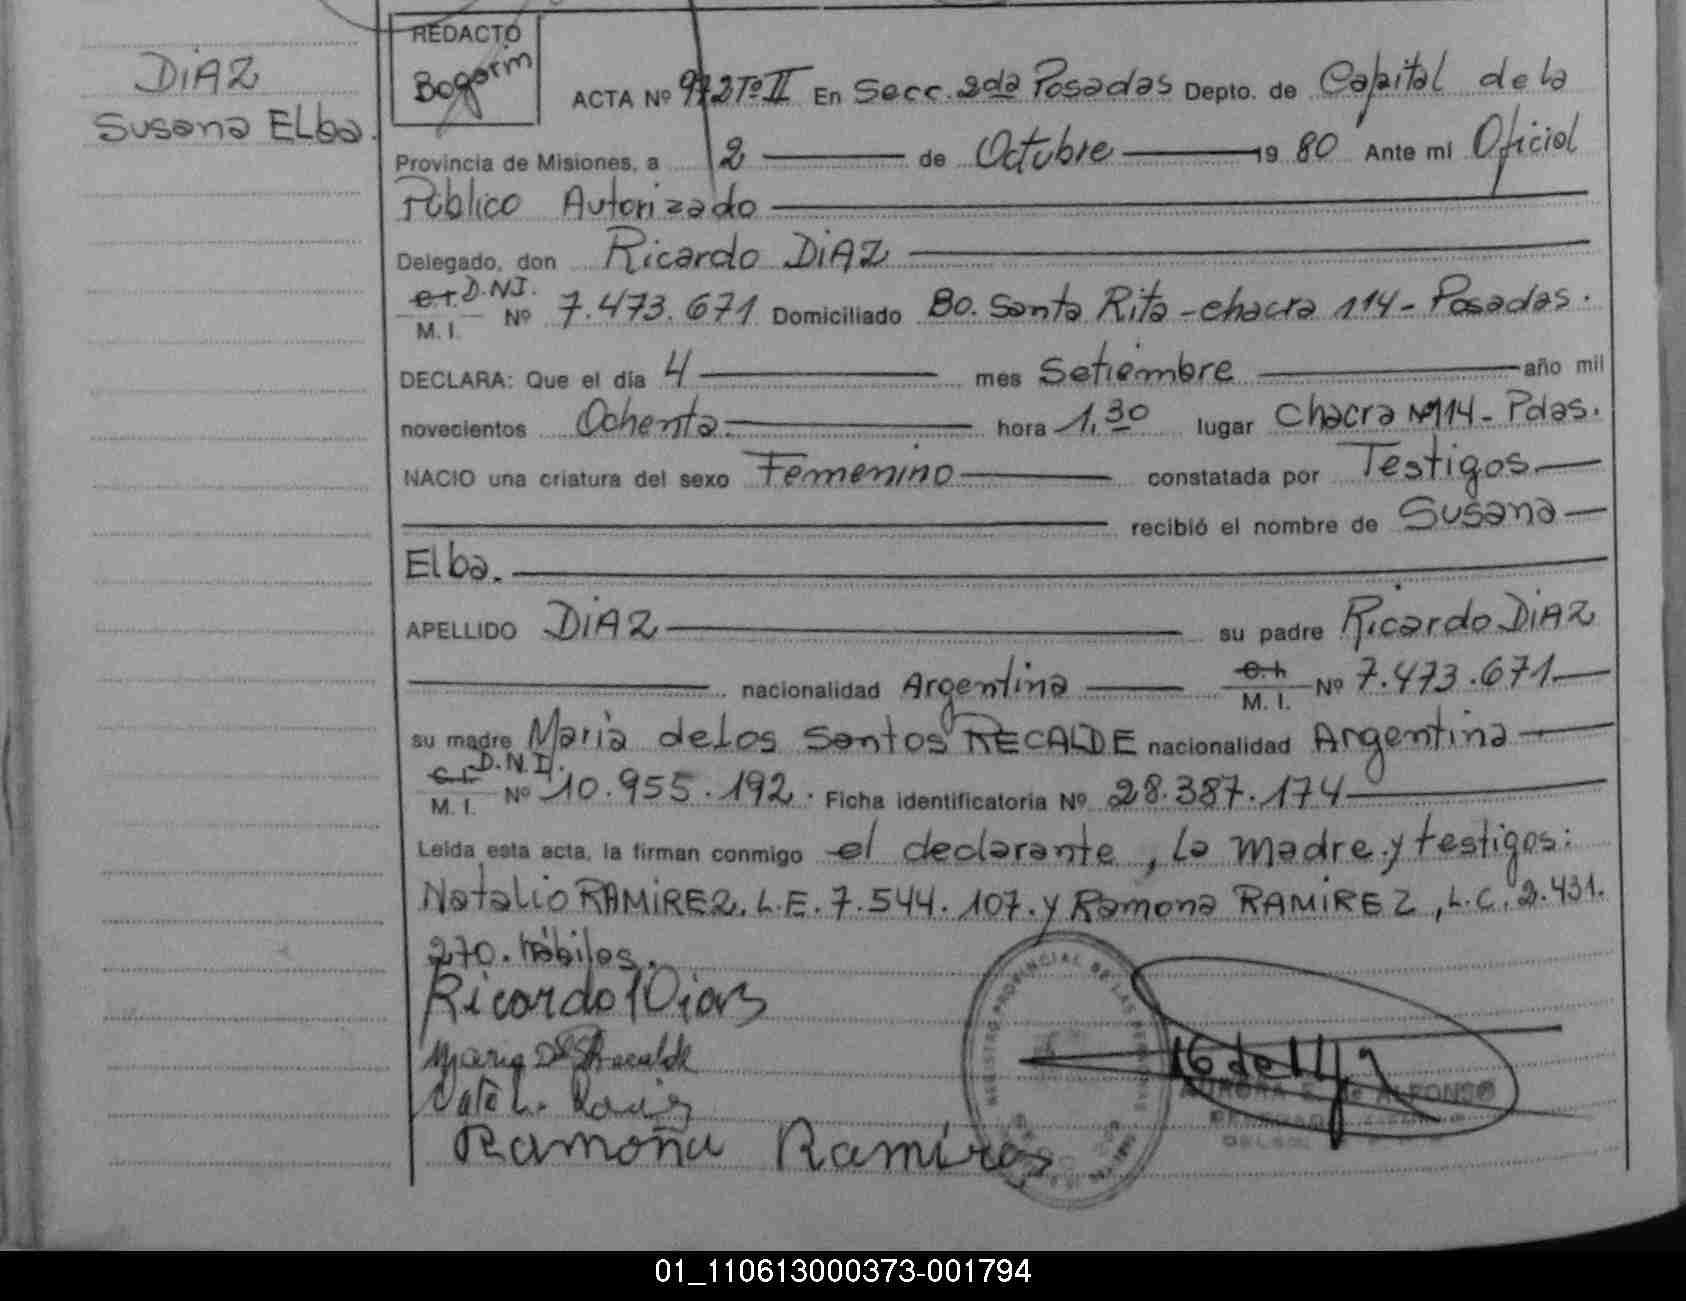 DiAZ
Susana ELba.
REDACTO
Bogarin
ACTA Nº 972 Tº II En Secc. 2da Posadas Depto. de Capital de la
Provincia de Misiones, a 2 de Octubre 19 80 Ante mi Oficial
Público Autorizado
Delegado, don Ricardo DiAZ
C.I. D.N.I.
M. I. Nº 7.473.671 Domiciliado Bo. Santa Rita - chacra 114 - Posadas.
DECLARA: Que el día 4 mes Setiembre año mil
novecientos Ochenta. hora 1,30 lugar Chacra Nº 114 - Pdas.
NACIO una criatura del sexo Femenino constatada por Testigos.
recibió el nombre de Susana
Elba.
APELLIDO DiAZ su padre Ricardo DiAZ
nacionalidad Argentina C.I. M. I. Nº 7.473.671
su madre Maria de los Santos RECALDE nacionalidad Argentina
C.I. D.N.I.
M. I. Nº 10.955.192. Ficha identificatoria Nº 28.387.174
Leída esta acta, la firman conmigo el declarante, la madre y testigos:
Natalio RAMIREZ, L.E. 7.544.107. y Ramona RAMiREZ, L.C. 2.431.
270. hábiles.
Ricardo Diaz
Maria D Recalde
Ramona Ramires
REGISTRO PROVINCIAL DE LAS PERSONAS
ALFONSO
01_110613000373-001794